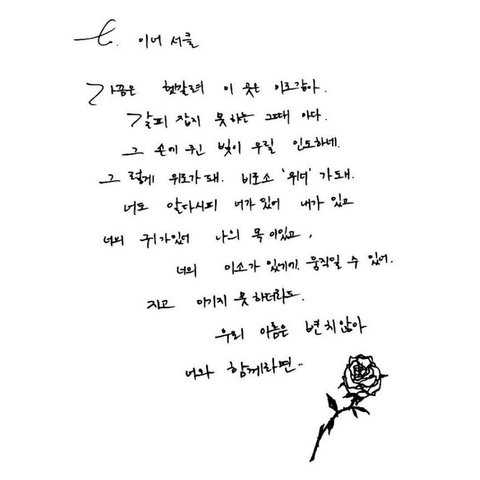 t. 이너 서클
가끔은 헷갈려 이 곳은 미로같아.
갈피 잡지 못하는 그때 마다.
그 손에 쥔 빛이 우릴 인도하네.
그렇게 위로가 돼. 비로소 '위더'가 돼.
너도 알다시피 너가 있어 내가 있고
너의 귀가 있어 나의 목이 있고,
너의 미소가 있기에 움직일 수 있어.
지고 이기지 못하더라도.
우리 이름은 변치않아
너와 함께라면..